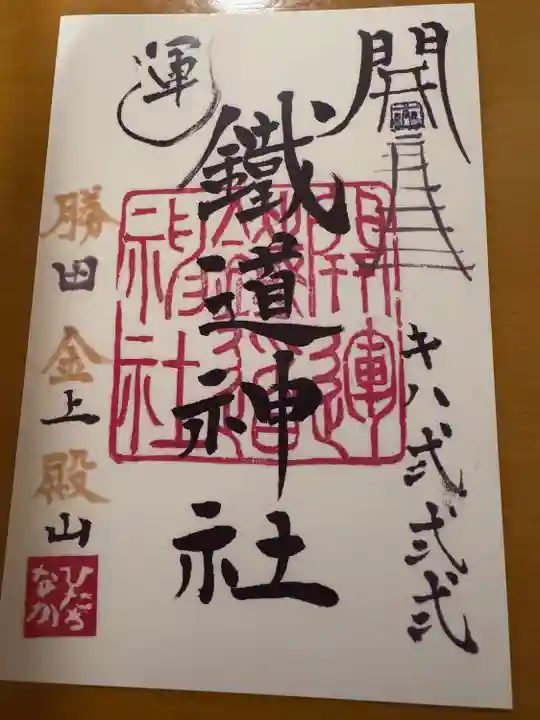 開運
鐵道神社
キハ弐弐弐
勝田 金上 殿山
開運鐵道神社
ひたちなか